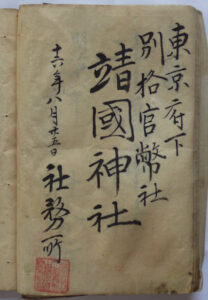 東京府下
別格官幣社
靖國神社
十六年八月廿五日
社務所